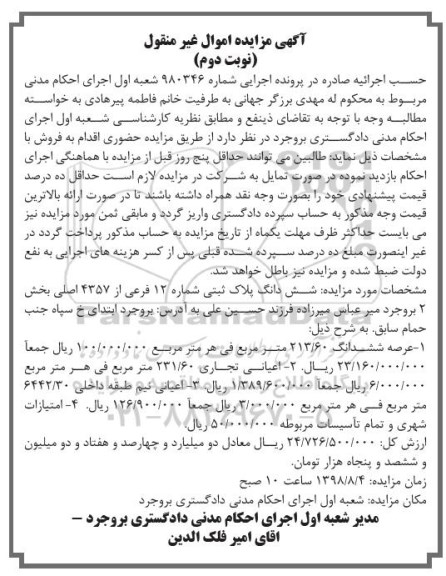 آگهی مزایده اموال غیر منقول
(نوبت دوم)
حسب اجرائیه صادره در پرونده اجرایی شماره ۹۸۰۳۴۶ شعبه اول اجرای احکام مدنی
مربوط به محکوم له مهدی برزگر جهانی به طرفیت خانم فاطمه پیرهادی به خواسته
مطالبه وجه با توجه به تقاضای ذینفع و مطابق نظریه کارشناسی شعبه اول اجرای
احکام مدنی دادگستری بروجرد در نظر دارد از طریق مزایده حضوری اقدام به فروش با
مشخصات ذیل نماید: طالبین می توانند حداقل پنج روز قبل از مزایده با هماهنگی اجرای
احکام بازدید نموده در صورت تمایل به شرکت در مزایده لازم است حداقل ده درصد
قیمت پیشنهادی خود را بصورت وجه نقد همراه داشته باشند تا در صورت ارائه بالاترین
قیمت وجه مذکور به حساب سپرده دادگستری واریز گردد و مابقی ثمن مورد مزایده نیز
می بایست حداکثر ظرف مهلت یکماه از تاریخ مزایده به حساب مذکور پرداخت گردد در
غیر اینصورت مبلغ ده درصد سپرده شده قبلی پس از کسر هزینه های اجرایی به نفع
دولت ضبط شده و مزایده نیز باطل خواهد شد.
مشخصات مورد مزایده: شش دانگ پلاک ثبتی شماره ۱۲ فرعی از ۴۳۵۷ اصلی بخش
۲ بروجرد میر عباس میرزاده فرزند حسین علی به آدرس: بروجرد ابتدای خ سپاه جنب
حمام سابق. به شرح ذیل:
۱-عرصه ششدانگ ۲۱۳/۶۰ متر مربع فی هر متر مربع ۱۰۰/۰۰۰/۰۰۰ ریال جمعاً
۲۳/۱۶۰/۰۰۰/۰۰۰ ریال. ۲- اعیانی تجاری ۲۳۱/۶۰ متر مربع فی هر متر مربع
۶/۰۰۰/۰۰۰ ریال جمعاً ۱/۳۸۹/۶۰۰/۰۰۰ ریال. ۳- اعیانی نیم طبقه داخلی ۶۴۴۲/۳۰
متر مربع فی هر متر مربع ۳/۰۰۰/۰۰۰ ریال جمعاً ۱۲۶/۹۰۰/۰۰۰ ریال. ۴- امتیازات
شهری و تمام تأسیسات مربوطه ۵۰/۰۰۰/۰۰۰ ریال.
ارزش کل: ۲۴/۷۲۶/۵۰۰/۰۰۰ ریال معادل دو میلیارد و چهارصد و هفتاد و دو میلیون
و ششصد و پنجاه هزار تومان.
زمان مزایده: ۱۳۹۸/۸/۴ ساعت ۱۰ صبح
مکان مزایده: شعبه اول اجرای احکام مدنی دادگستری بروجرد
مدیر شعبه اول اجرای احکام مدنی دادگستری بروجرد –
اقای امیر فلک الدین